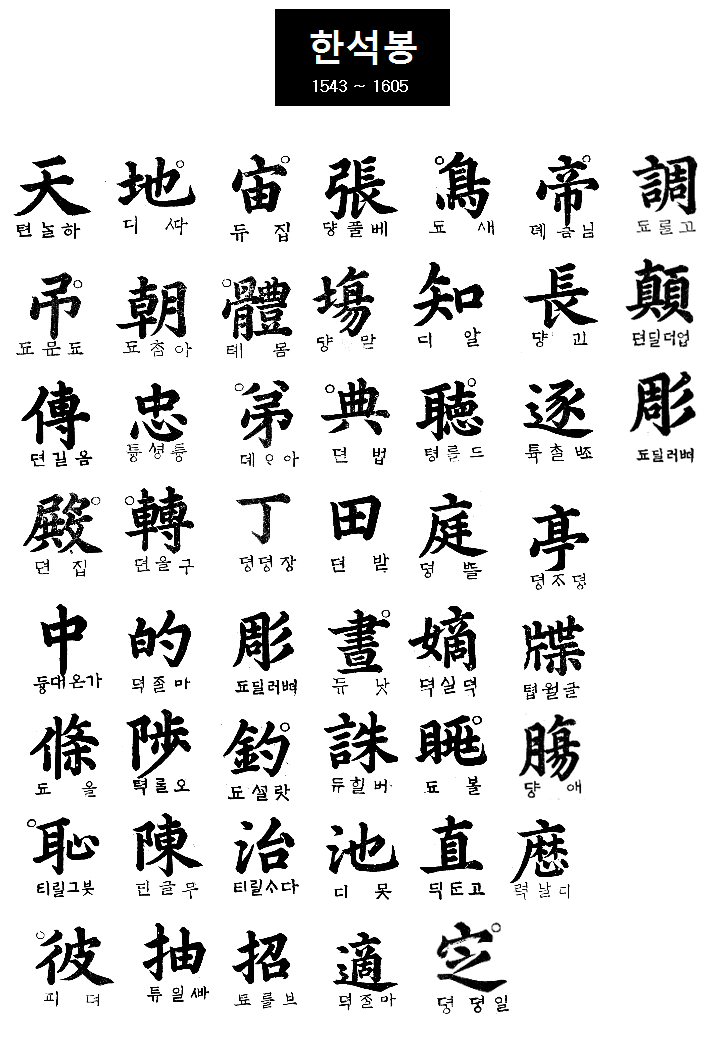 한석봉
1543 ~ 1605
天 地 宙 張 鳥 帝 調
텬늘하 디 ᄯᅡ 듀 집 댱풀베 됴 새 됴를고
吊 朝 體 塲 知 長 顚
됴문됴 됴참아 톄 몸 댱 맏 디 알 댱 긴 뎐딜더업
傳 忠 弟 典 聽 逐 彫
뎐길옴 튱셩튱 뎐 법 텽를드 됴딜러뼈
殿 轉 丁 田 庭 亭
뎐 집 뎐울구 뎡뎡장 뎐 밭 뎡 뜰 뎡ᄌᆞ뎡
中 的 彫 晝 嫡 牒
듕대온가 뎍졸마 됴딜러뼈 듀 낫 뎍실뎍 텹월글
條 陟 釣 誅 眺 膓
됴 올 텩를오 됴설랏 듀힐버 됴 볼 댱 애
恥 陳 治 池 直
티릴그붓 티릴소다 디 못
彼 抽 招 適 定
피 뎌 튜일ᄲᅢ 뎍졸마 뎡 뎡일